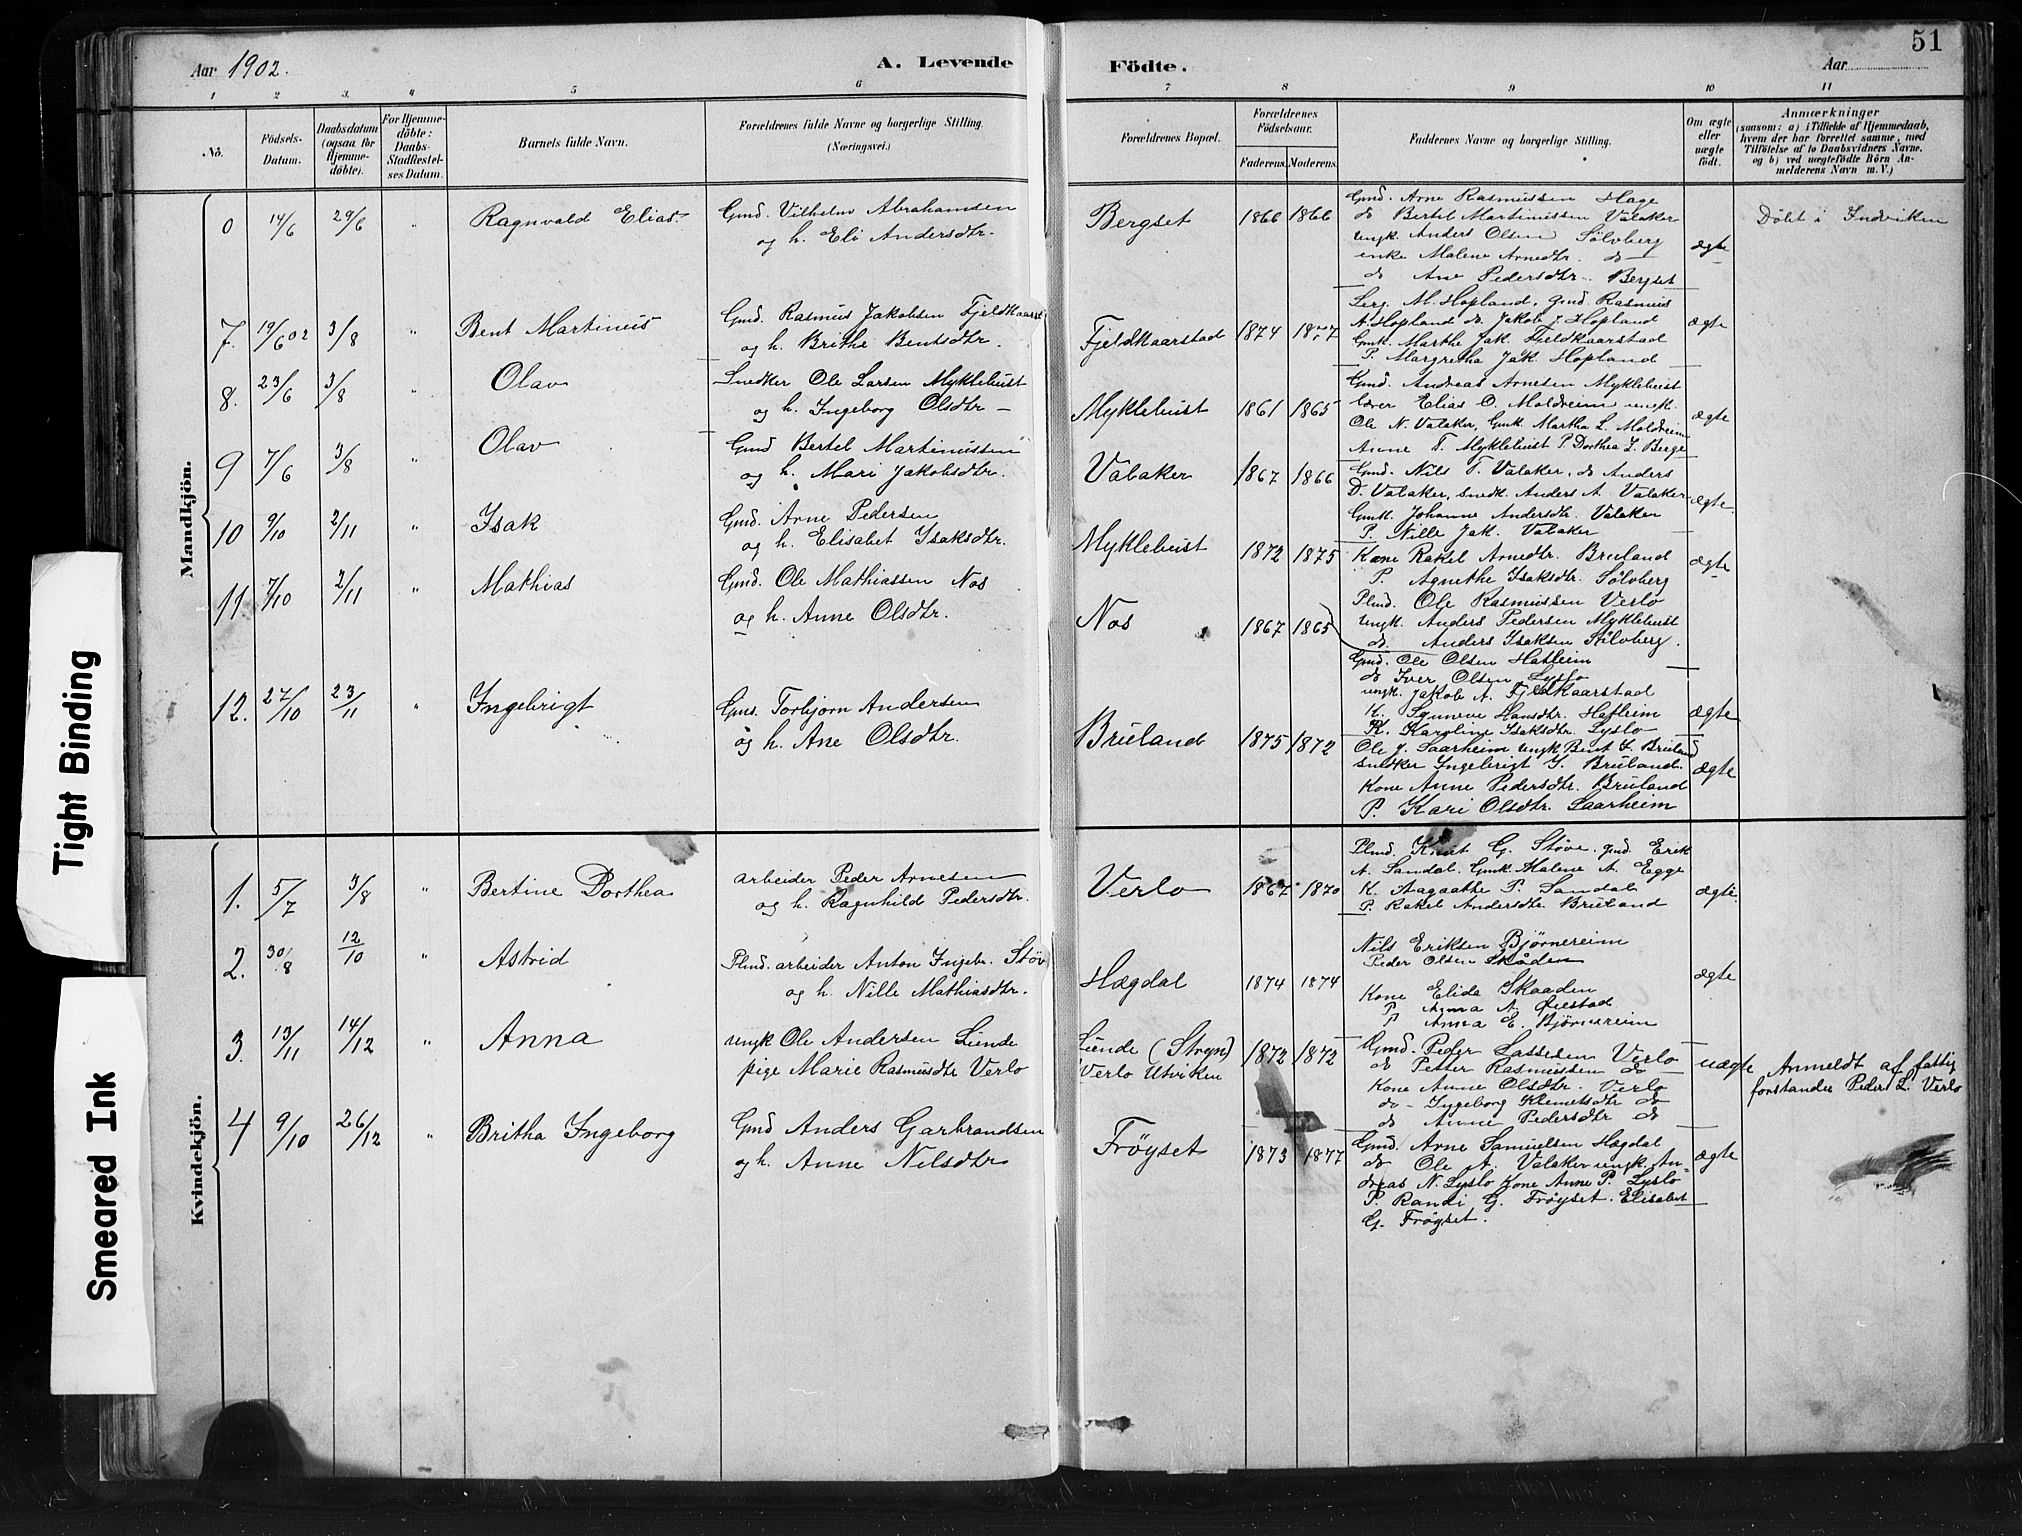 51
Aar 1902.
A. Levende Födte.
Aar
1 2 3. 4 5 6 7 8 9 10 11
No.
Födsels-Datum.
Daabsdatum (ogsaa for Hjemme-döbte).
For Hjemme-döbte: Daabs-Stadfæstel-ses Datum.
Barnets fulde Navn.
Forældrenes fulde Navne og borgerlige Stilling.
(Næringsvei.)
Forældrenes Bopæl.
Forældrenes Födselsaar.
Faderens. Moderens.
Faddernes Navne og borgerlige Stilling.
Om ægte eller uægte födt.
Anmærkninger
(saasom: a) i Tilfælde af Hjemmedaab,
hvem der har forrettet samme, med
Tilföielse af to Daabsvidners Navne.
og b) ved uægtefödte Börn An-
melderens Navn m. V.)
Mandkjön.
0 14/6 29/6 " Ragnvald Elias.
Gmd. Vilhelm Abrahamsen
og h. Eli Andersdtr.
Bergset 1866 1866
Gmd. Arne Rasmussen Hage
do Bertel Martinussen Valaker
ungk. Anders Olsen Sölvberg
enke Malene Arnedtr. do
do Ane Pedersdtr. Bergset
ægte
Döbt i Indviken
7. 19/6 02 3/8 " Bent Martinus
Gmd. Rasmus Jakobsen Fjeldkaarst
og h. Brithe Bentsdtr.
Fjeldkaarstad 1874
Serg. M. Hopland, gmd. Rasmus
A. Hopland do. Jakob J Hopland
Gmk. Marthe Jak. Fjeldkaarstad
P. Margretha Jak. Hopland
ægte
8. 23/6 3/8 " Olav
Snedker Ole Larsen Myklebust
og h. Ingeborg Olsdtr
Myklebust 1861 1865
Gmd. Andreas Arnesen Myklebust
lærer Elias O. Moldreim ungk.
Ole N. Valaker, Gmk Martha L. Moldreim
Anne T. Myklebust P. Dorthea L. Berge
ægte
9 7/6 3/8 " Olav
Gmd Bertel Martinussen
og h. Mari Jakobsdtr.
Valaker 1867 1866
Gmd. Nils T. Valaker, do Anders
D. Valaker, snedk. Anders A. Valaker
Gmk. Johanne Andersdtr. Valaker
P. Nille Jak. Valaker
ægte.
10 9/10 2/11 " Isak
Gmd. Arne Pedersen
og h. Elisabet Isaksdtr.
Myklebust 1872 1875
Kone Rakel Arnedtr. Bruland
P. Agnethe Isaksdtr. Sölvberg
Plmd. Ole Rasmussen Verlo
ungk. Anders Pedersen Myklebust
do. Anders Isaksen Sölvberg.
ægte
11 7/10 2/11 " Mathias
Gmd. Ole Mathiassen Nos
og h. Anne Olsdtr.
Nos 1867 1865
Gmd. Ole Olsen Hafleim
do Iver Olsen Lyslo
ungk. Jakob A. Fjeldkaarstad
K. Synneve Hansdtr. Hefleim
Karoline Isaksdtr. Lyslo
ægte
12. 27/10 23/11 " Ingebrigt
Gms. Torbjørn Andersen
og h. Ane Olsdtr.
Bruland 1875 1872
Ole J. Saarheim ungk Bent I. Bruland
snedker Ingebrigt I. Bruland.
Kone Anne Pedersdtr. Bruland
P. Kari Olsdtr. Saarheim
ægte
Kvindekjön.
1. 5/7 3/8 " Bertine Dorthea
arbeider Peder Arnesen
og h. Ragnhild Pedersdtr.
Verlo 1867 1870
Plmd. Knut G. Støve. gmd. Erik
A. Sandal. Gmk Malene A. Egge
K. Aagaathe P. Sandal
P. Rakel Andersdtr. Bruland
ægte.
2. 30/8 12/10 " Astrid
Plmd. arbeider Anton Ingebr. Støv
og h. Nille Mathiasdtr.
Hægdal 1874 1874
Nils Eriksen Bjørnereim
Peder Olsen Skåden
Kone Elida Skaaden
P. Anna A. Ørestad
P Anna E. Bjørnereim
ægte
3. 13/11 14/12 " Anna
ungk Ole Andersen Lunde
pige Marie Rasmusdtr Verlo
Lunde (Stryn)
Verlo Utviken
1872 1872
Gmd. Peder Lassesen Verlo
do Petter Rasmussen do
Kone Anne Olsdtr. Verlo
do - Ingeborg Klemetsdtr do
do Anne Pedersdtr do
uægte
Anmeldt af fattig
forstander Peder L. Verlo
4 9/10 26/12 " Britha Ingeborg
Gmd Anders Garbrandsen
og h. Anne Nilsdtr
Frøyset 1873 1877
Gmd. Arne Samuelsen Hægdal
do Ole A. Valaker ungk. An-
dreas N. Lyslo Kone Anne P. Lyslo
P. Randi G. Frøyset. Elisabet
G. Frøyset.
ægte
Tight Binding
Smeared Ink